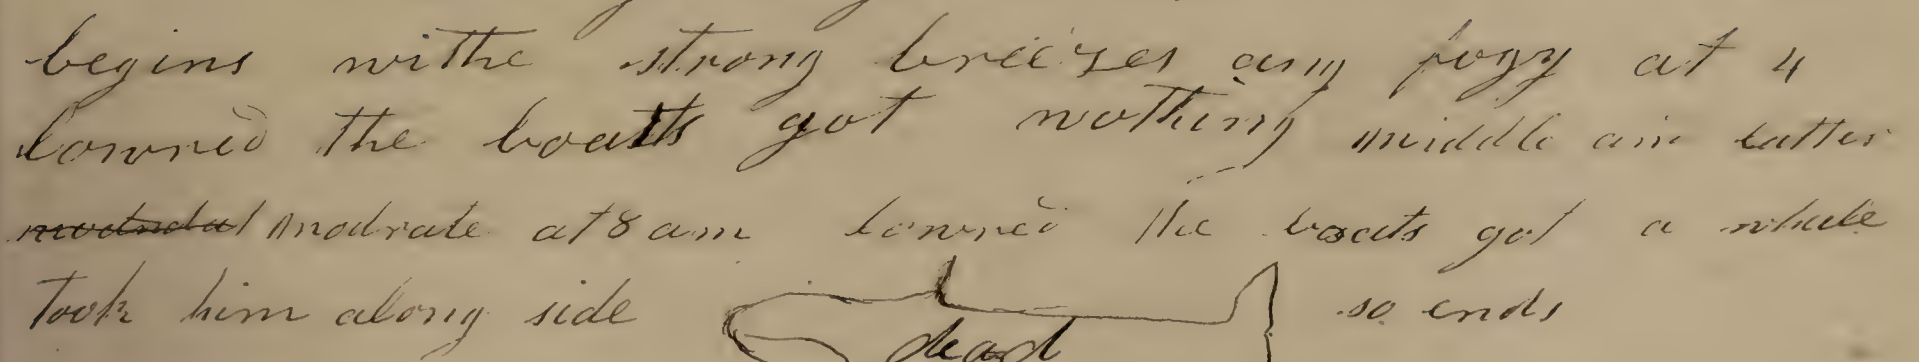 begins withe strong breezes any fogy at 4
lowred the boats got nothing middle am latter
modrate at 8 am lowred the boats got a whale
took him along side dead so ends